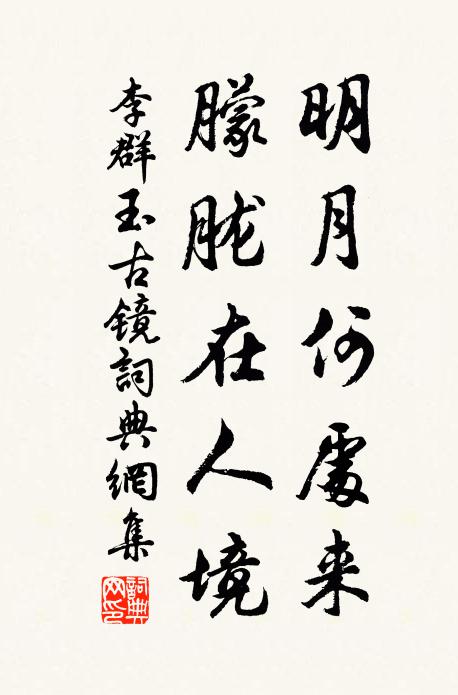 明月何處来
朦胧在人境
李群玉古镜詞典網集
詞典网印